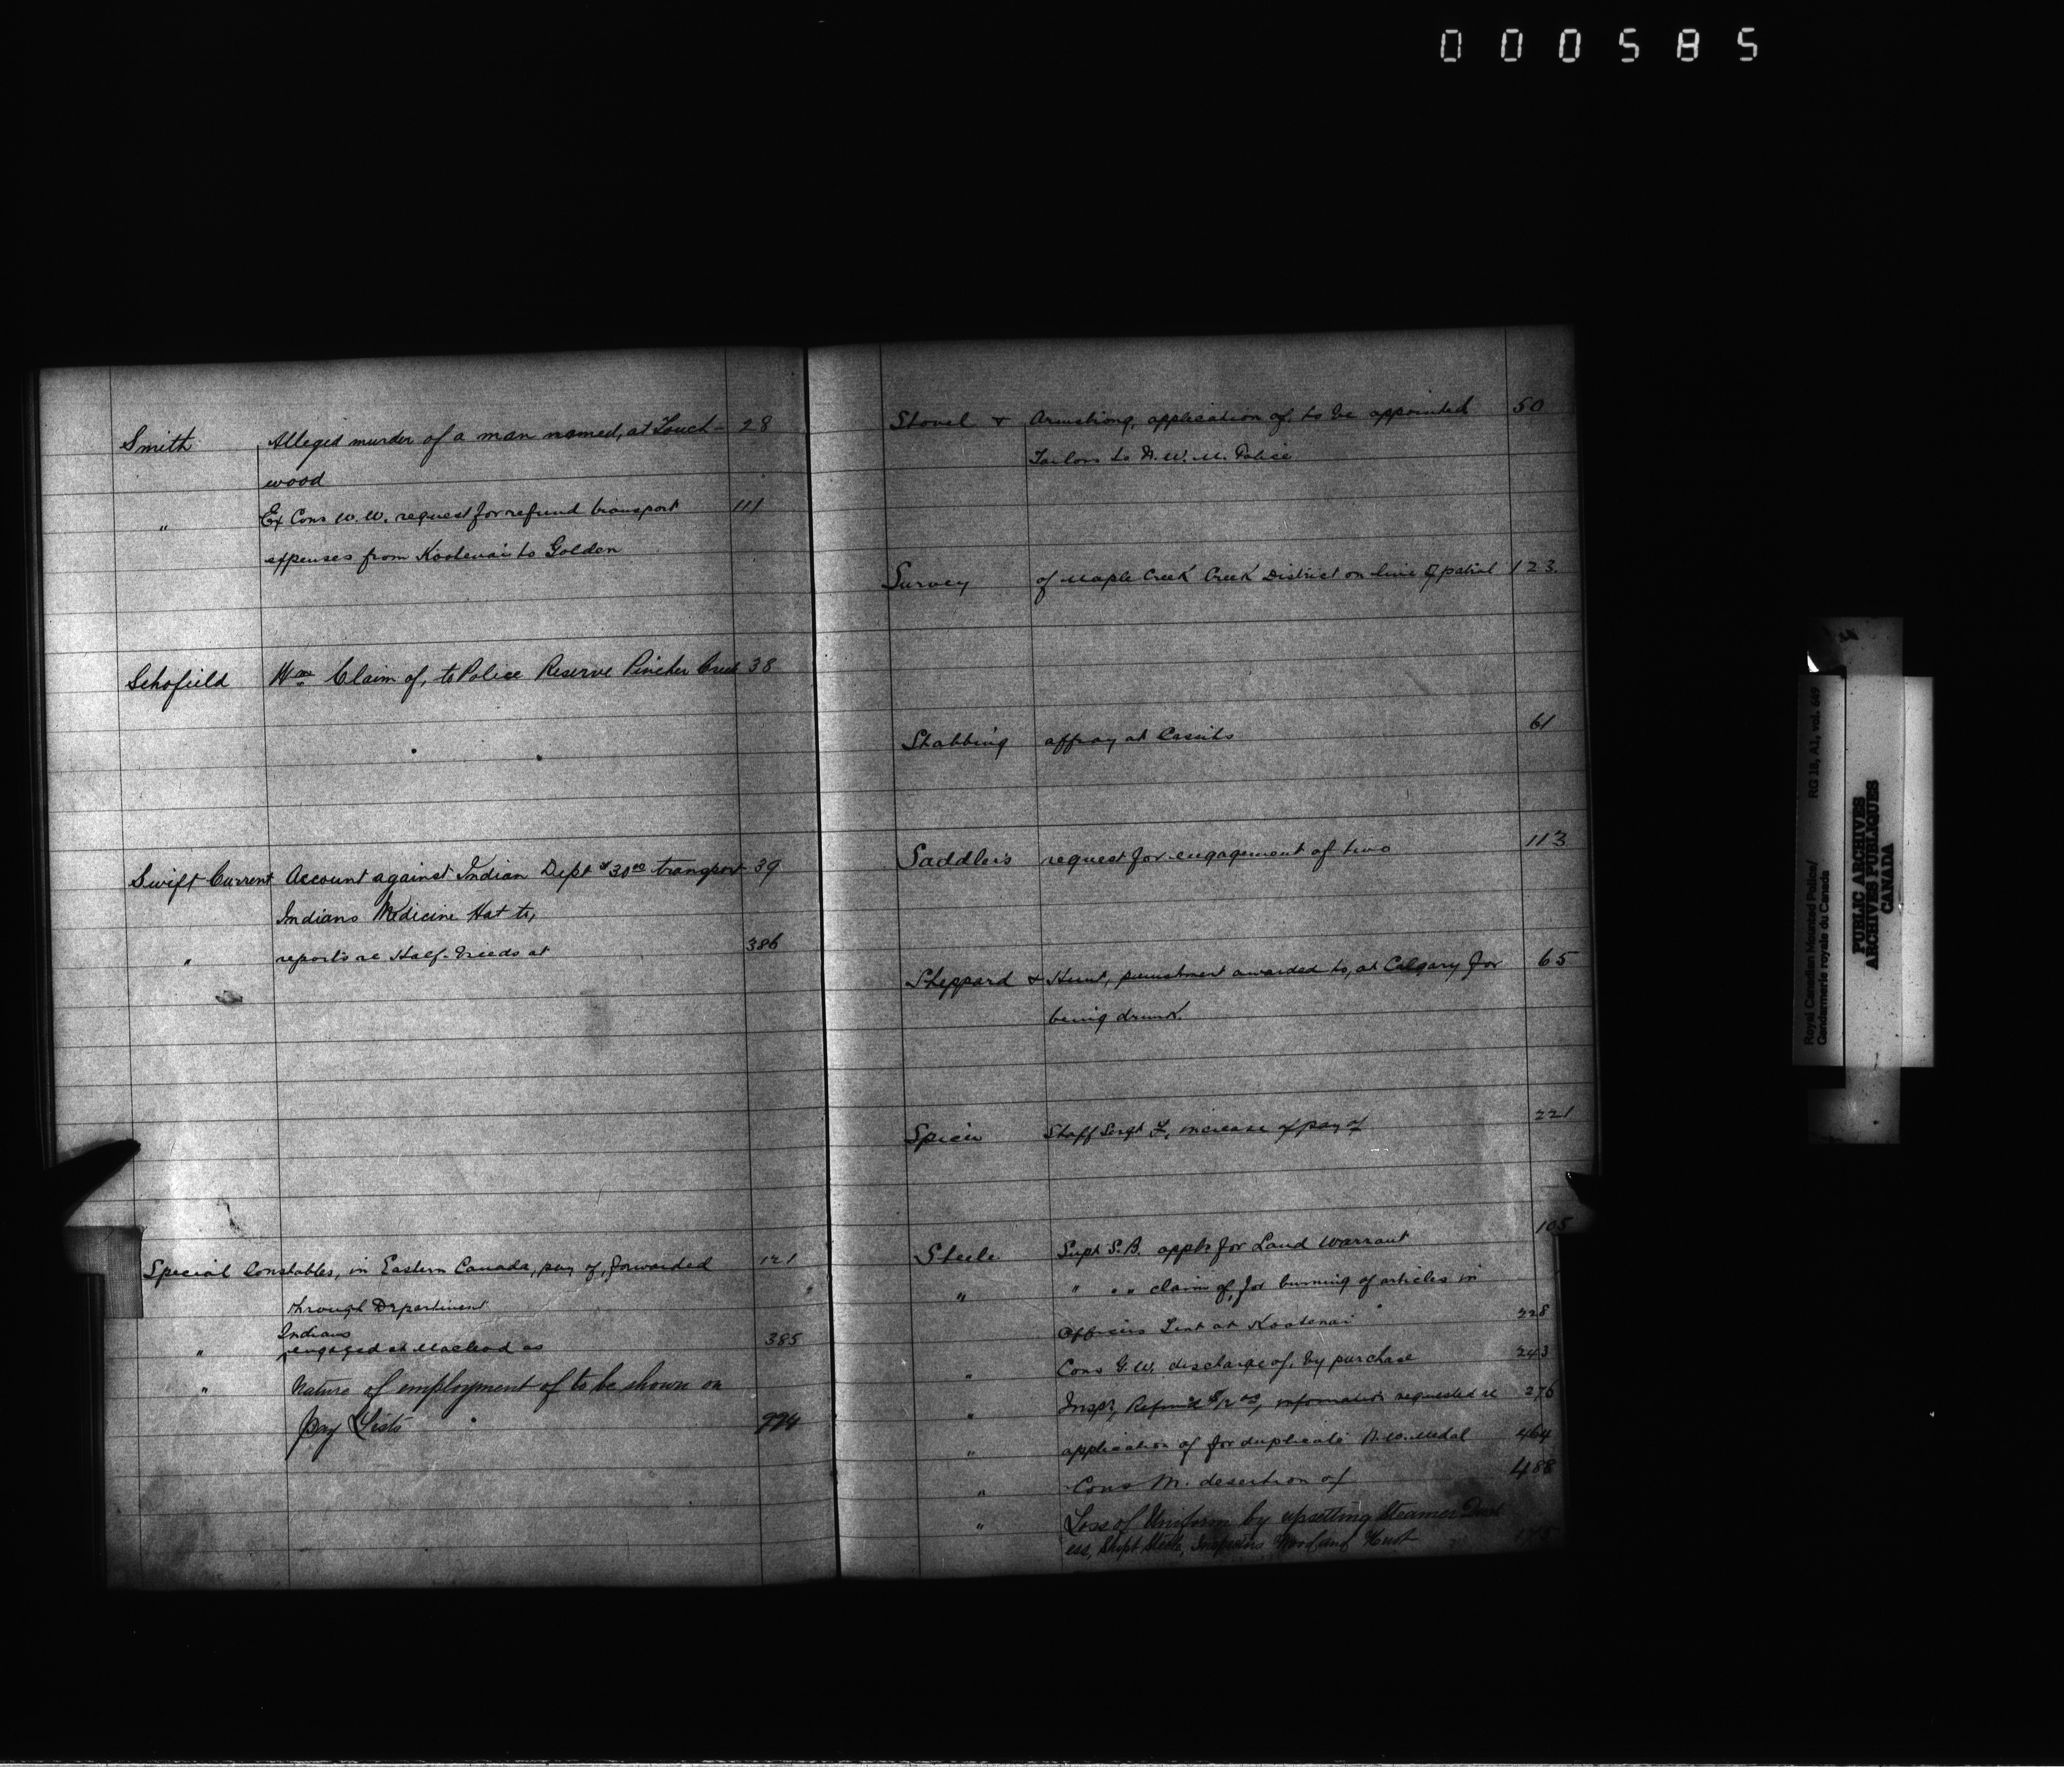 000585
Smith Alleged murder of a man named, at Touch- 28
wood
" Ex Cons W.W. request for refund transport 111
expenses from Kootenai to Golden
Schofield Wm Claim of, to Police Reserve Pincher Creek 38
Swift Current Account against Indian Dept $30.00 transport 39
Indians Medicine Hat to,
" reports re Half-Breeds at 386
Special Constables, in Eastern Canada, pay of, forwarded 121
through Department
Indians
" engaged at Macleod as 385
" Nature of employment of to be shown on
Pay Lists 774
Stovel & Armstrong, application of, to be appointed 50
Tailors to N.W.M. Police
Survey of Maple Creek Creek District on line of patrol 123
Stabbing affray at 61
Saddlers request for engagement of two 113
Sheppard & Hunt, punishment awarded to, at Calgary for 65
being drunk.
Spicer Staff Sergt F, increase of pay of 221
Steele Supt S.B. appls for Land Warrant 105
" " " " claim of, for burning of articles in
Officers Tent at Kootenai 228
" Cons G.W. discharge of, by purchase 243
" Inspr, Refund information requested re 276
" application of for duplicate N.W. Medal 464
" Cons M. desertion of 488
" Loss of Uniform by upsetting Steamer Duch
ess, Supt Steele, Inspectors Wood and Huot
Royal Canadian Mounted Police/ RG 18, A1, vol. 669
Gendarmerie royale du Canada
PUBLIC ARCHIVES
ARCHIVES PUBLIQUES
CANADA